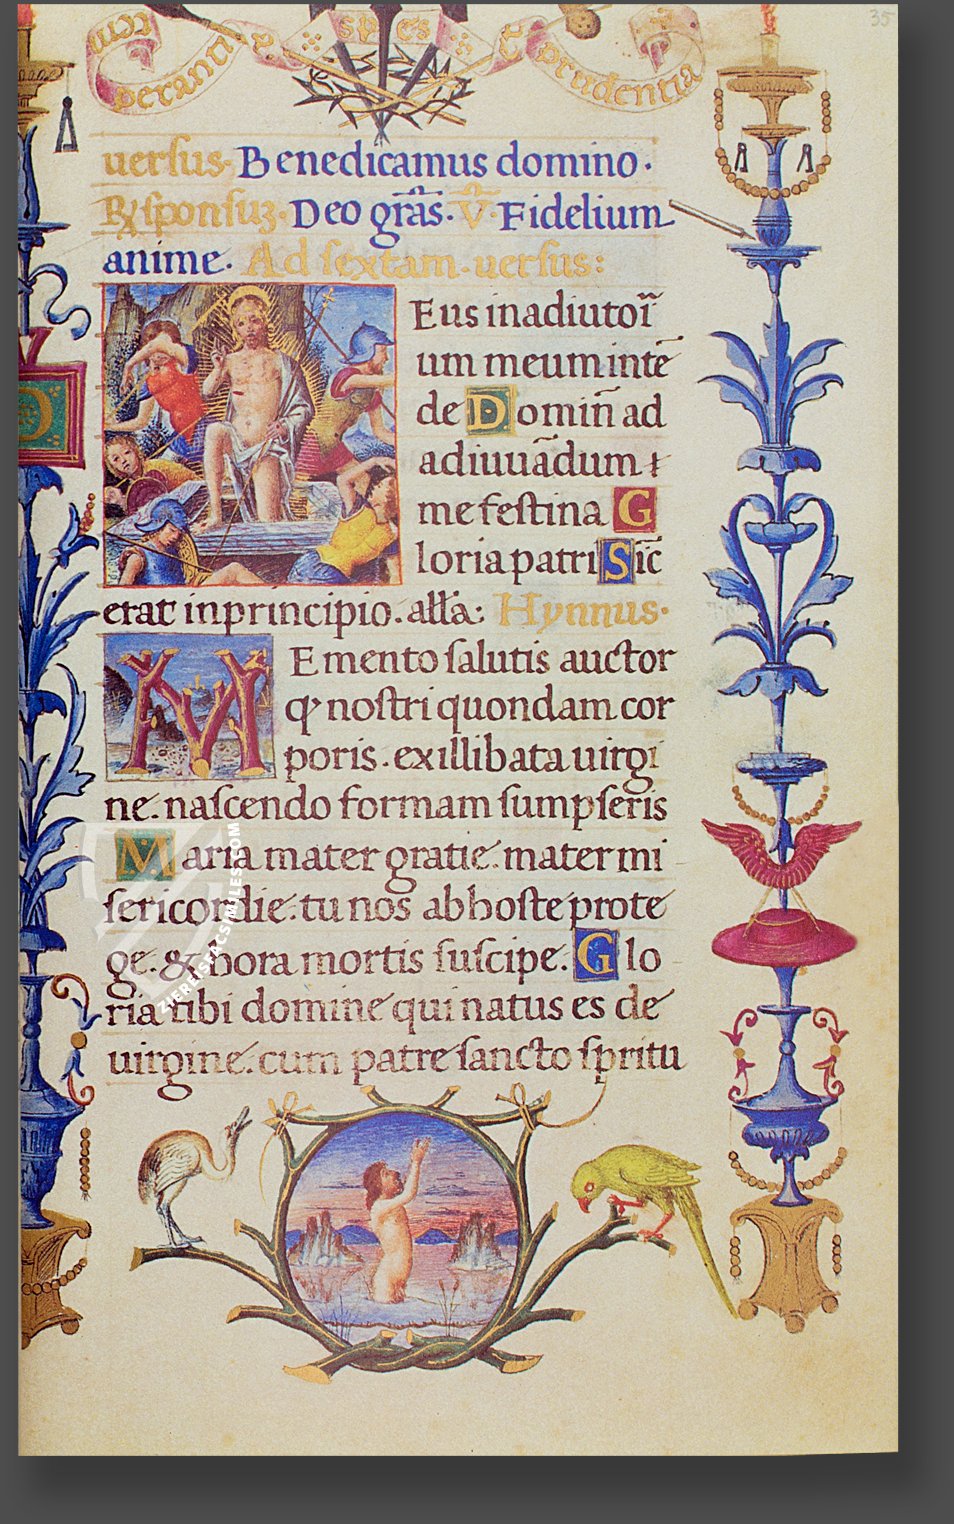 35
perantiam
spes
et prudentia
uersus. Benedicamus domino.
Deo gr̄as. V̄. Fidelium
anime. Ad sextam. uersus:
Eus in adiutoī
um meum intē
de Domiñ ad
adiuuādum
me festina G
loria patri Sic̄
erat in principio. all̄a: Hynnus.
M Emento salutis auctor
nostri quondam cor
poris. ex illibata uirgi
ne. nascendo formam sumpseris
Maria mater gratie. mater mi
sericordie. tu nos ab hoste prote
ge. & hora mortis suscipe. Glo
ria tibi domine qui natus es de
uirgine. cum patre sancto spritu
ZIEREISFACSIMILES.COM